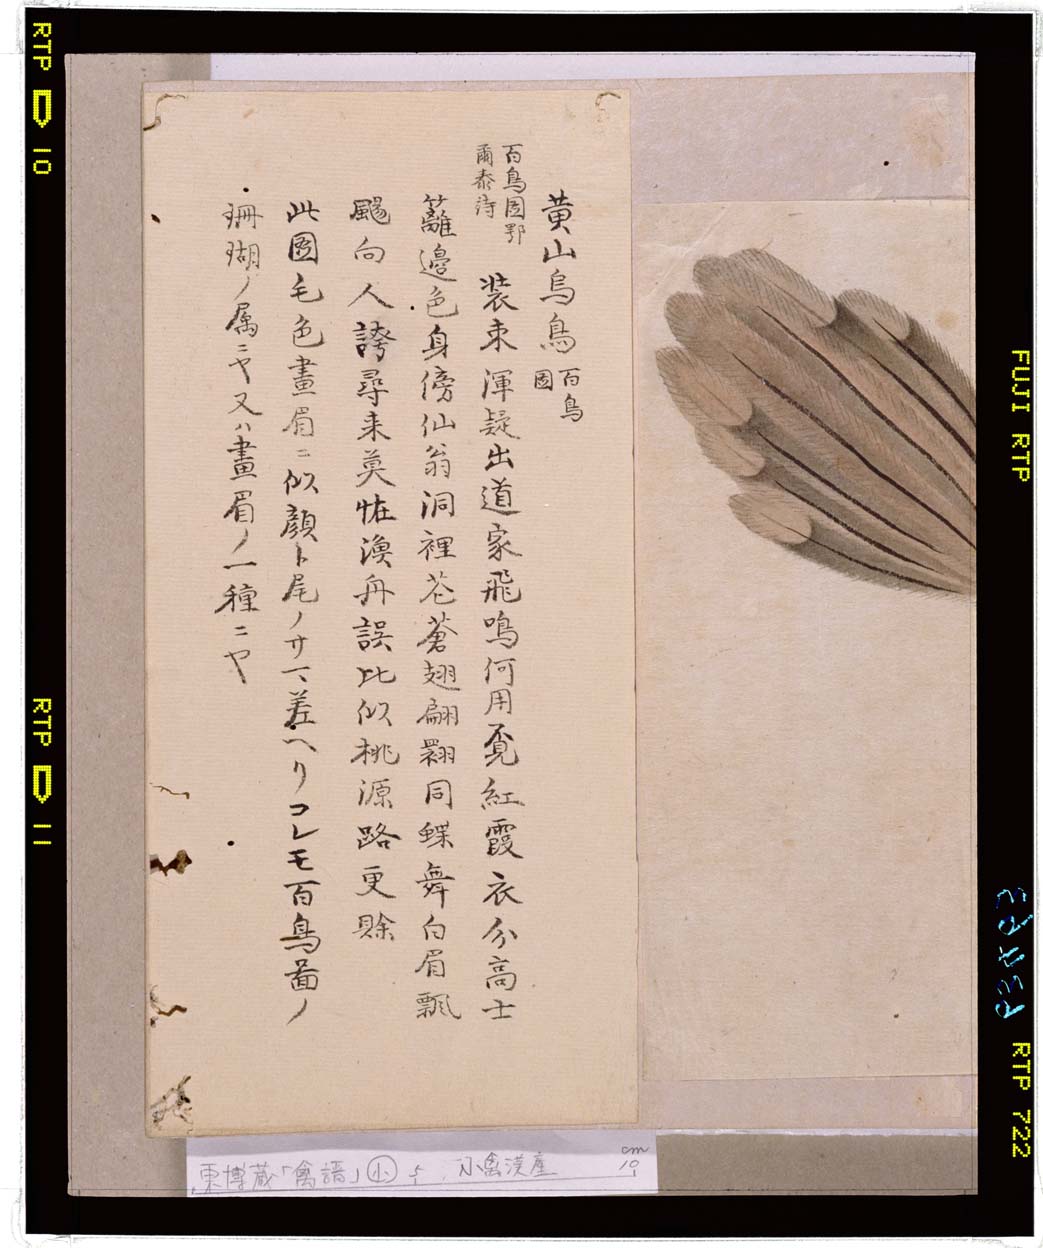 黄山烏鳥 百鳥
圖
百鳥圖鄂
爾泰詩
装束渾疑出道家飛鳴何用覓紅霞衣分高士
籬邉色身傍仙翁洞裡花蒼翅扁翻同蝶舞白眉飄
颺向人誇尋来莫恠漁舟誤比似桃源路更賒
此圖毛色畫眉ニ似顔ト尾ノサマ差ヘリコレモ百鳥啚ノ
珊瑚ノ属ニヤ又ハ畫眉ノ一種ニヤ
東博蔵「禽譜」小 5 小禽漢産
cm
10
RTP 10
RTP 11
FUJI RTP
RTP 722